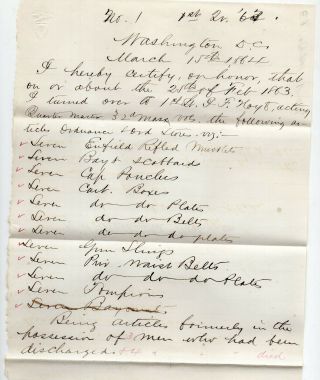 No. 1 1st Qr. '63
Washington D.C.
March 15th 1864
I hereby certify, on honor, that
on or about the 28th of Feb 1863.
I turned over to 1st Lt. F. Hoyt, acting
Quarter Master 32d Mass Vols. the following ar
ticles Ordnance & Ord Stores. viz:-
Seven Enfield Rifled Muskets
Seven Bayt Scabbards
Seven Cap Pouches
Seven Cart. Boxes
Seven do- do- Plates
Seven do- do- Belts
Seven do- do- do plates
Seven Gun Slings
Seven Priv. Waist Belts
Seven do do- do- Plates
Seven Tompions
Seven Bayonets.
Being articles formerly in the
possession of 3 men who had been
discharged. & 4 died